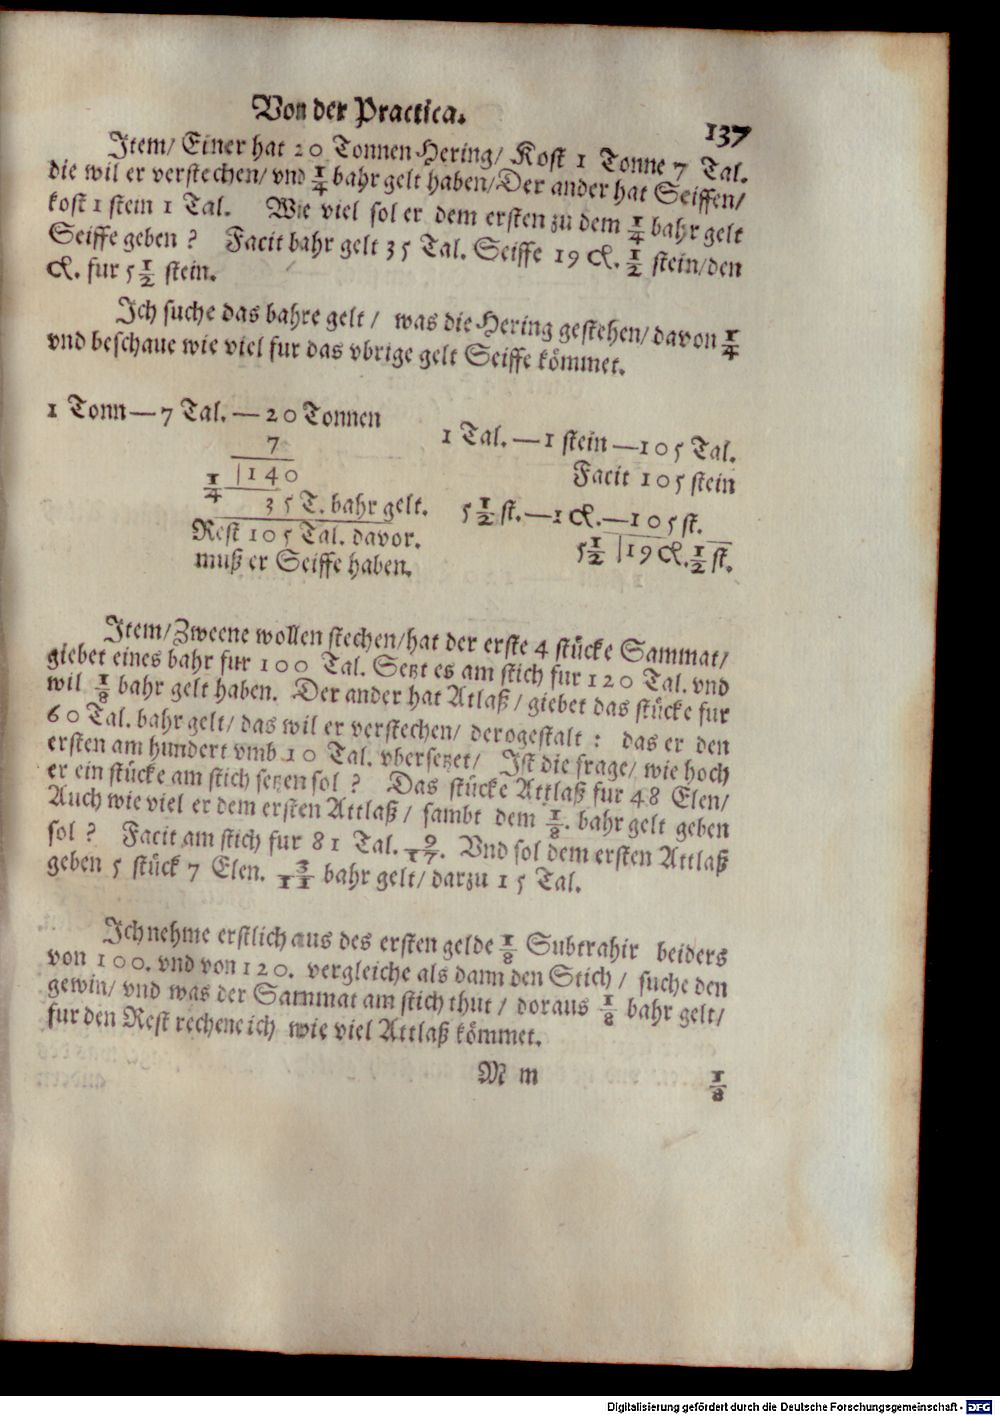 Von der Practica.
137
Item/ Einer hat 20 Tonnen Hering/ Kost 1 Tonne 7 Tal.
die wil er verstechen/ vnd 1/4 bahr gelt haben/ Der ander hat Seiffen/
kost 1 stein 1 Tal. Wie viel sol er dem ersten zu dem 1/4 bahr gelt
Seiffe geben ? Facit bahr gelt 35 Tal. Seiffe 19 Cl. 1/2 stein/ den
Cl. fur 5 1/2 stein.
Ich suche das bahre gelt / was die Hering gestehen/ davon 1/4
vnd beschaue wie viel fur das vbrige gelt Seiffe kömmet.
1 Tonn — 7 Tal. — 20 Tonnen
7
|140
1/4
35 T. bahr gelt.
Rest 105 Tal. davor.
muß er Seiffe haben.
1 Tal. — 1 stein — 105 Tal.
Facit 105 stein
5 1/2 st. — 1 Cl. — 105 st.
5 1/2 |19 Cl. 1/2 st.
Item/ Zweene wollen stechen/ hat der erste 4 stücke Sammat/
giebet eines bahr fur 100 Tal. Setzt es am stich fur 120 Tal. vnd
wil 1/8 bahr gelt haben. Der ander hat Atlaß / giebet das stücke fur
60 Tal. bahr gelt/ das wil er verstechen/ derogestalt : das er den
ersten am hundert vmb 10 Tal. vbersetzet/ Ist die frage/ wie hoch
er ein stücke am stich setzen sol ? Das stücke Attlaß fur 48 Elen/
Auch wie viel er dem ersten Attlaß / sambt dem 1/8. bahr gelt geben
sol ? Facit am stich fur 81 Tal. 9/17. Vnd sol dem ersten Attlaß
geben 5 stück 7 Elen. 3/11 bahr gelt/ darzu 15 Tal.
Ich nehme erstlich aus des ersten gelde 1/8 Subtrahir beiders
von 100. vnd von 120. vergleiche als dann den Stich / suche den
gewin/ vnd was der Sammat am stich thut / doraus 1/8 bahr gelt/
fur den Rest recheneich wie viel Attlaß kömmet.
M m
1/8
Digitalisierung gefördert durch die Deutsche Forschungsgemeinschaft - DFG